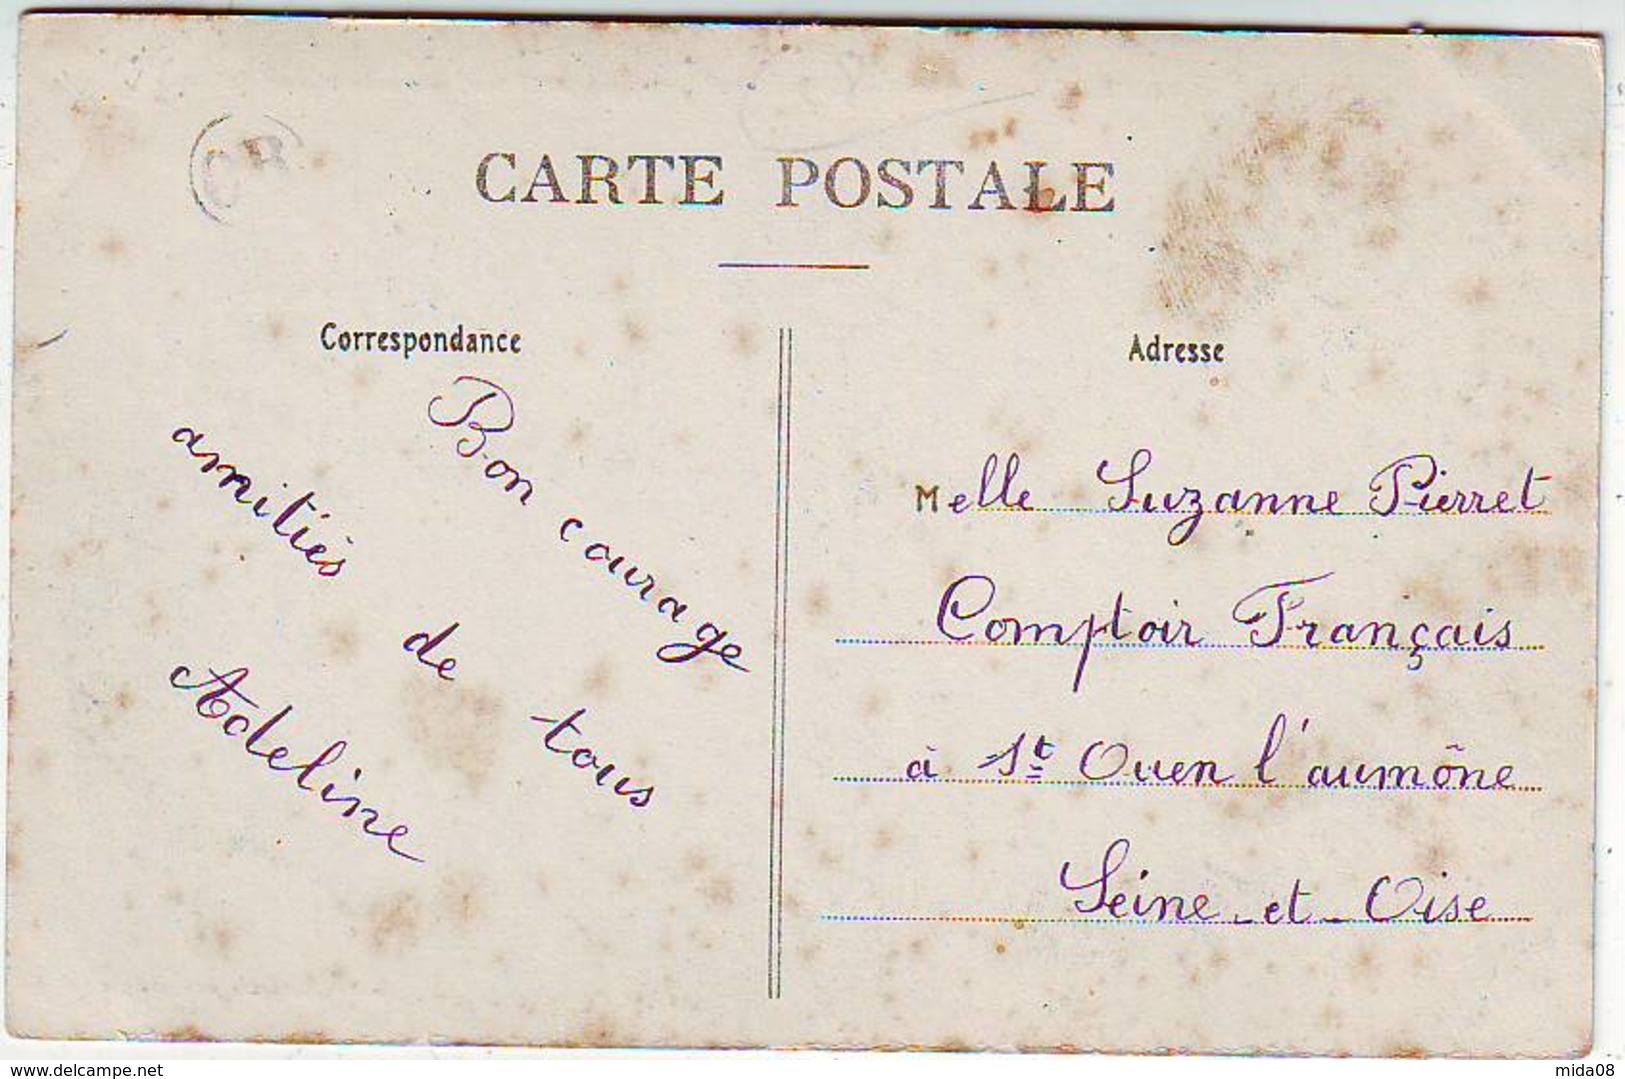 OB
CARTE POSTALE
Correspondance
Bon courage
amitiés de tous
Adeline
Adresse
Melle Suzanne Pierret
Comptoir Français
à St Ouen l'aumône
Seine-et-Oise
www.delcampe.net
mida08